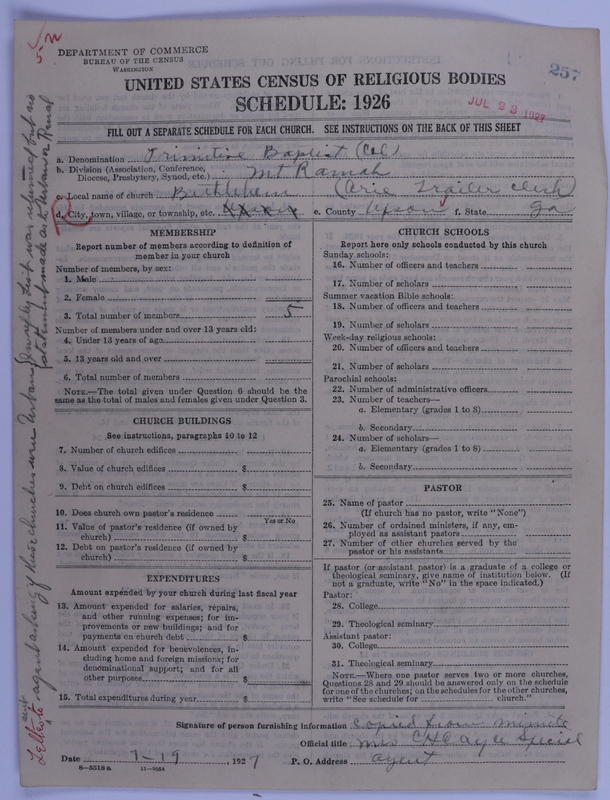 DEPARTMENT OF COMMERCE
BUREAU OF THE CENSUS
WASHINGTON
257
UNITED STATES CENSUS OF RELIGIOUS BODIES
SCHEDULE: 1926
JUL 23 1927
FILL OUT A SEPARATE SCHEDULE FOR EACH CHURCH. SEE INSTRUCTIONS ON THE BACK OF THIS SHEET
a. Denomination Primitive Baptist (Col)
b. Division (Association, Conference, Diocese, Presbytery, Synod, etc.) Mt Ramah
c. Local name of church Bethlehem
d. City, town, village, or township, etc. e. County Upson f. State Ga
MEMBERSHIP
Report number of members according to definition of
member in your church
Number of members, by sex:
1. Male
2. Female
3. Total number of members 5
Number of members under and over 13 years old:
4. Under 13 years of age
5. 13 years old and over
6. Total number of members
NOTE.—The total given under Question 6 should be the
same as the total of males and females given under Question 3.
CHURCH BUILDINGS
See instructions, paragraphs 10 to 12
7. Number of church edifices
8. Value of church edifices $
9. Debt on church edifices $
10. Does church own pastor's residence
Yes or No
11. Value of pastor's residence (if owned by
church) $
12. Debt on pastor's residence (if owned by
church) $
EXPENDITURES
Amount expended by your church during last fiscal year
13. Amount expended for salaries, repairs,
and other running expenses; for im-
provements or new buildings; and for
payments on church debt $
14. Amount expended for benevolences, in-
cluding home and foreign missions; for
denominational support; and for all
other purposes $
15. Total expenditures during year $
CHURCH SCHOOLS
Report here only schools conducted by this church
Sunday schools:
16. Number of officers and teachers
17. Number of scholars
Summer vacation Bible schools:
18. Number of officers and teachers
19. Number of scholars
Week-day religious schools:
20. Number of officers and teachers
21. Number of scholars
Parochial schools:
22. Number of administrative officers
23. Number of teachers—
a. Elementary (grades 1 to 8)
b. Secondary
24. Number of scholars—
a. Elementary (grades 1 to 8)
b. Secondary
PASTOR
25. Name of pastor
(If church has no pastor, write "None")
26. Number of ordained ministers, if any, em-
ployed as assistant pastors
27. Number of other churches served by the
pastor or his assistants
If pastor (or assistant pastor) is a graduate of a college or
theological seminary, give name of institution below. (If
not a graduate, write "No" in the space indicated.)
Pastor:
28. College
29. Theological seminary
Assistant pastor:
30. College
31. Theological seminary
NOTE.—Where one pastor serves two or more churches,
Questions 28 and 29 should be answered only on the schedule
for one of the churches; on the schedules for the other churches,
write "See schedule for church."
Signature of person furnishing information copied from minute
Official title Mrs Special
Date 7-19, 1927 P. O. Address agent
8—5518a 11—9554